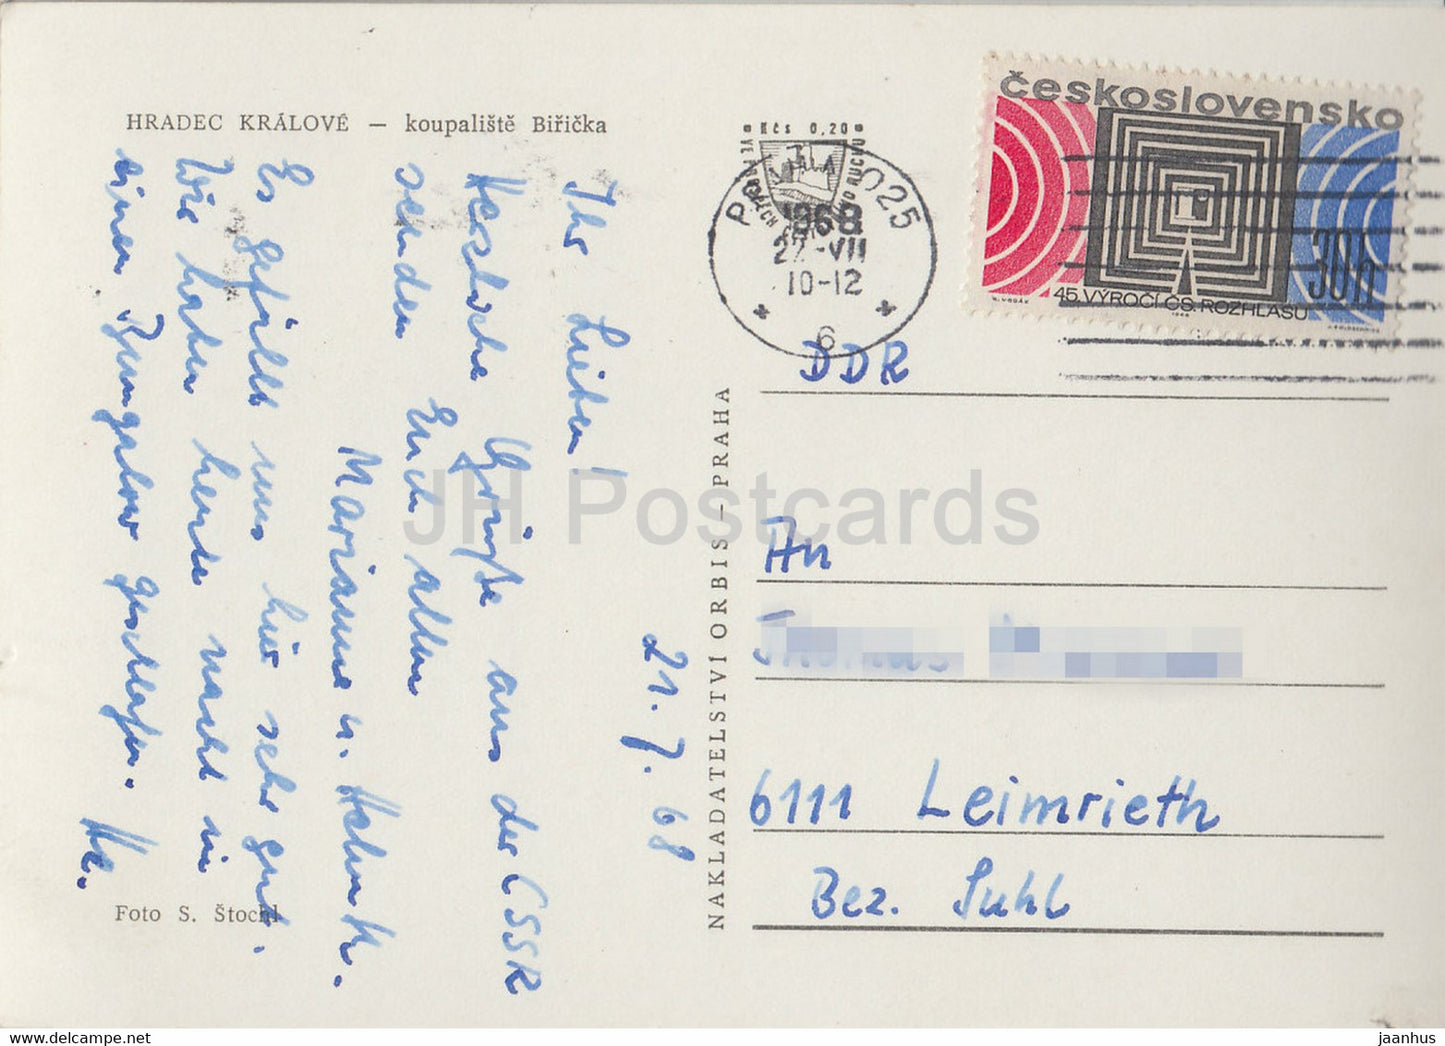 HRADEC KRÁLOVÉ — koupaliště Biřička
21. 7. 68
Ihr Lieben!
Herzliche Grüße aus der ČSSR
senden Euch allen
Marianne u. Helmut K.
Es gefällt uns hier sehr gut.
Wir haben heute nacht in
einem Bungalow geschlafen. He.
Foto S. Štochl
NAKLADATELSTVÍ ORBIS — PRAHA
Kčs 0,20
1968
22.-VII
10-12
6
025
československo
30h
45. VÝROČÍ ČS. ROZHLASU
1968
DDR
An
Thomas
6111 Leimrieth
Bez. Suhl
JH Postcards
jaanhus © www.delcampe.net